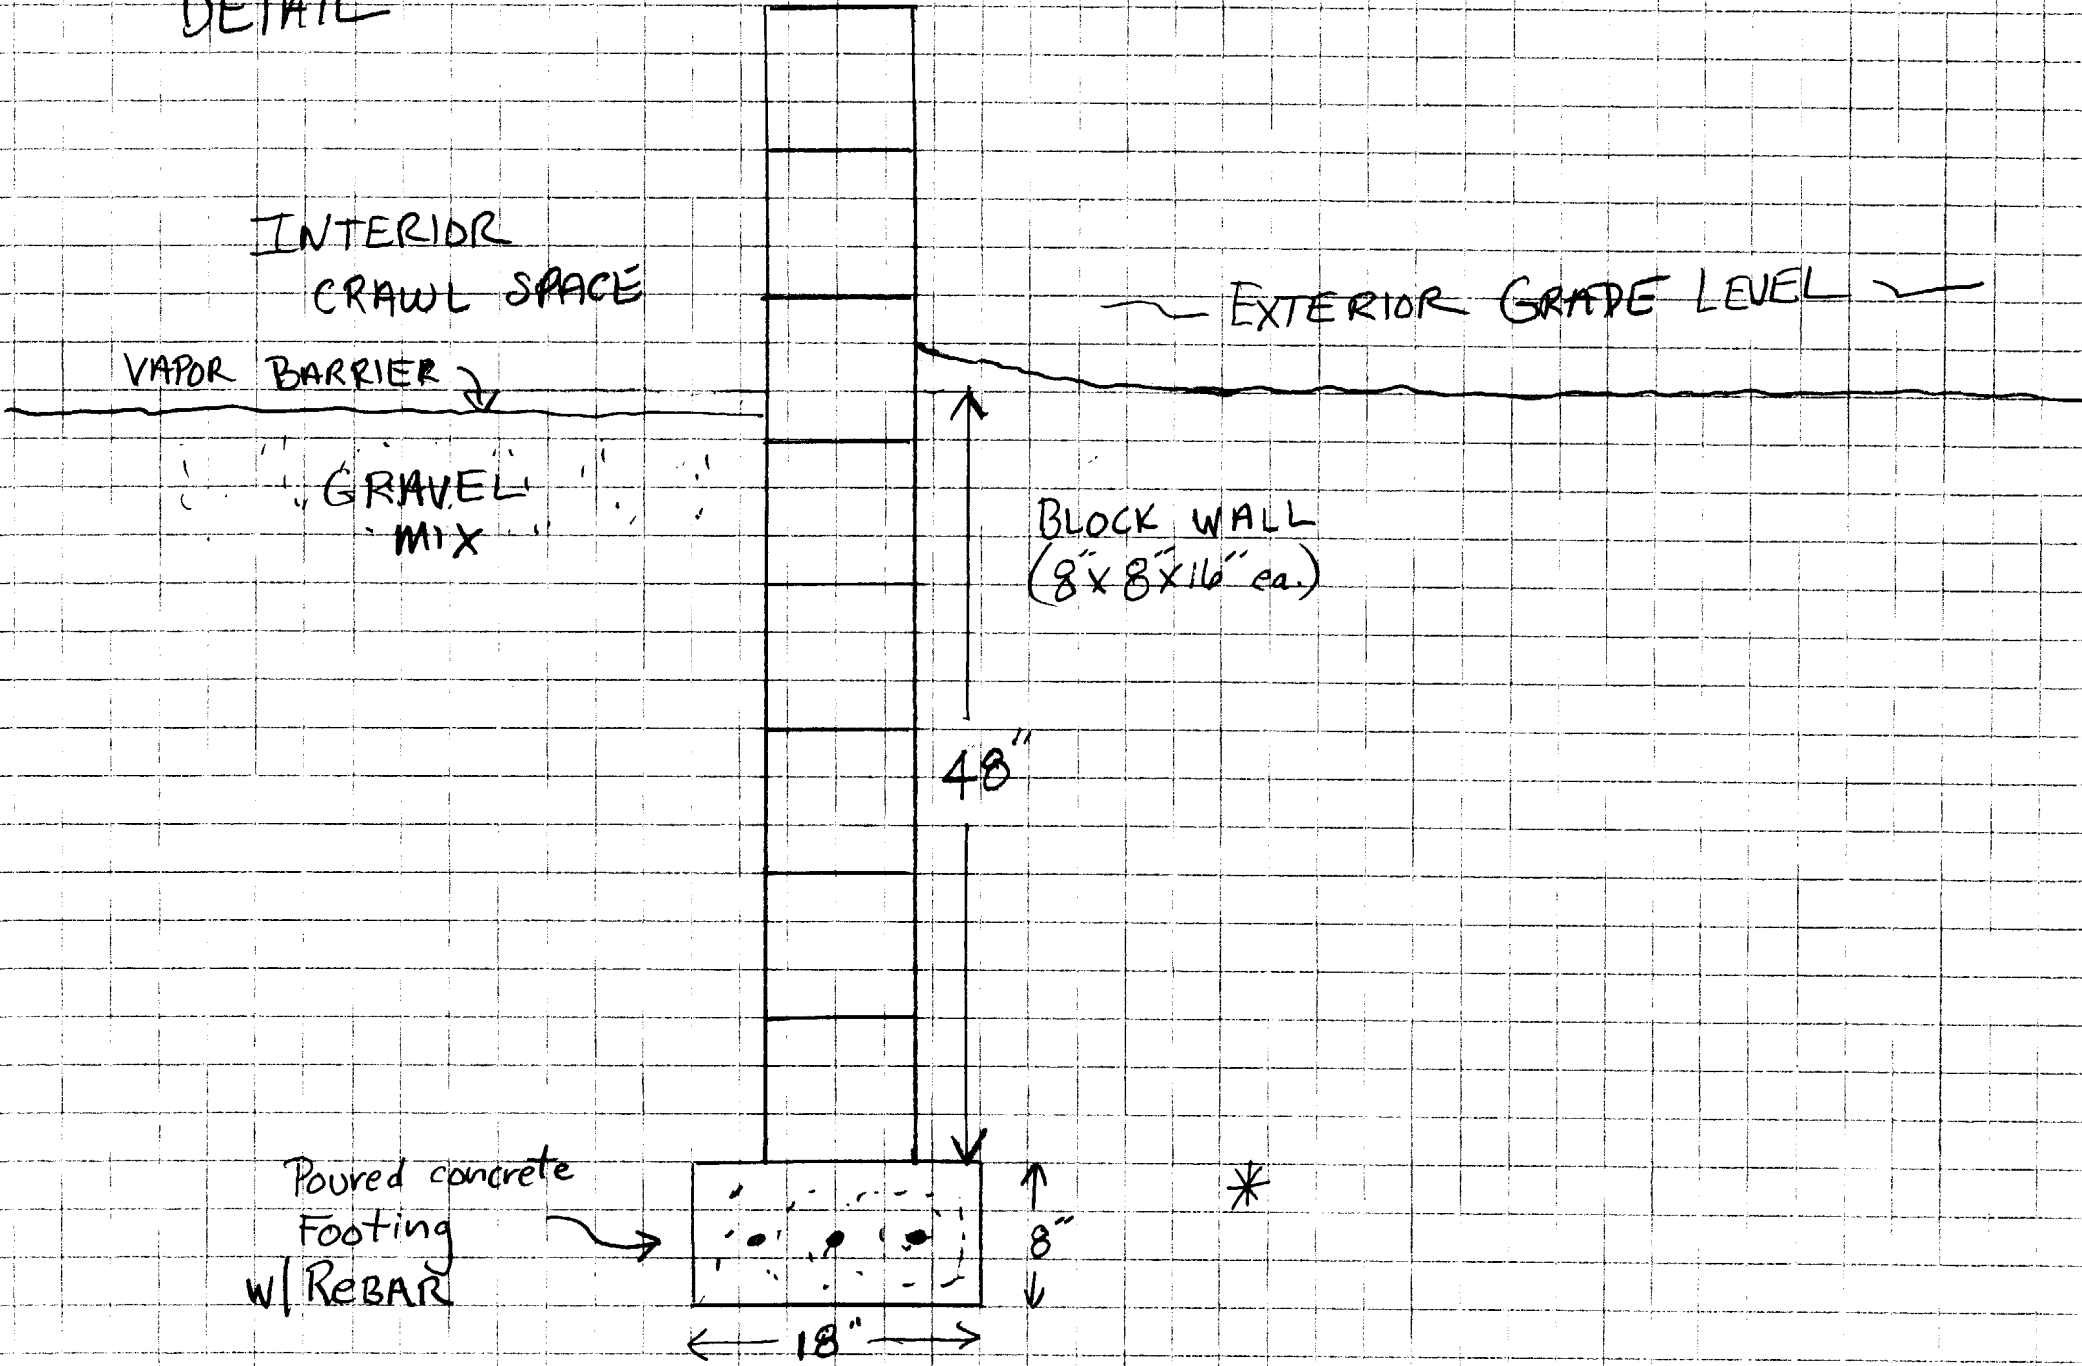 DETAIL
INTERIOR
CRAWL SPACE
EXTERIOR GRADE LEVEL
VAPOR BARRIER
GRAVEL
MIX
BLOCK WALL
(8"x 8"x16" ea.)
48"
Poured concrete
Footing
w/ ReBAR
8"
*
18"